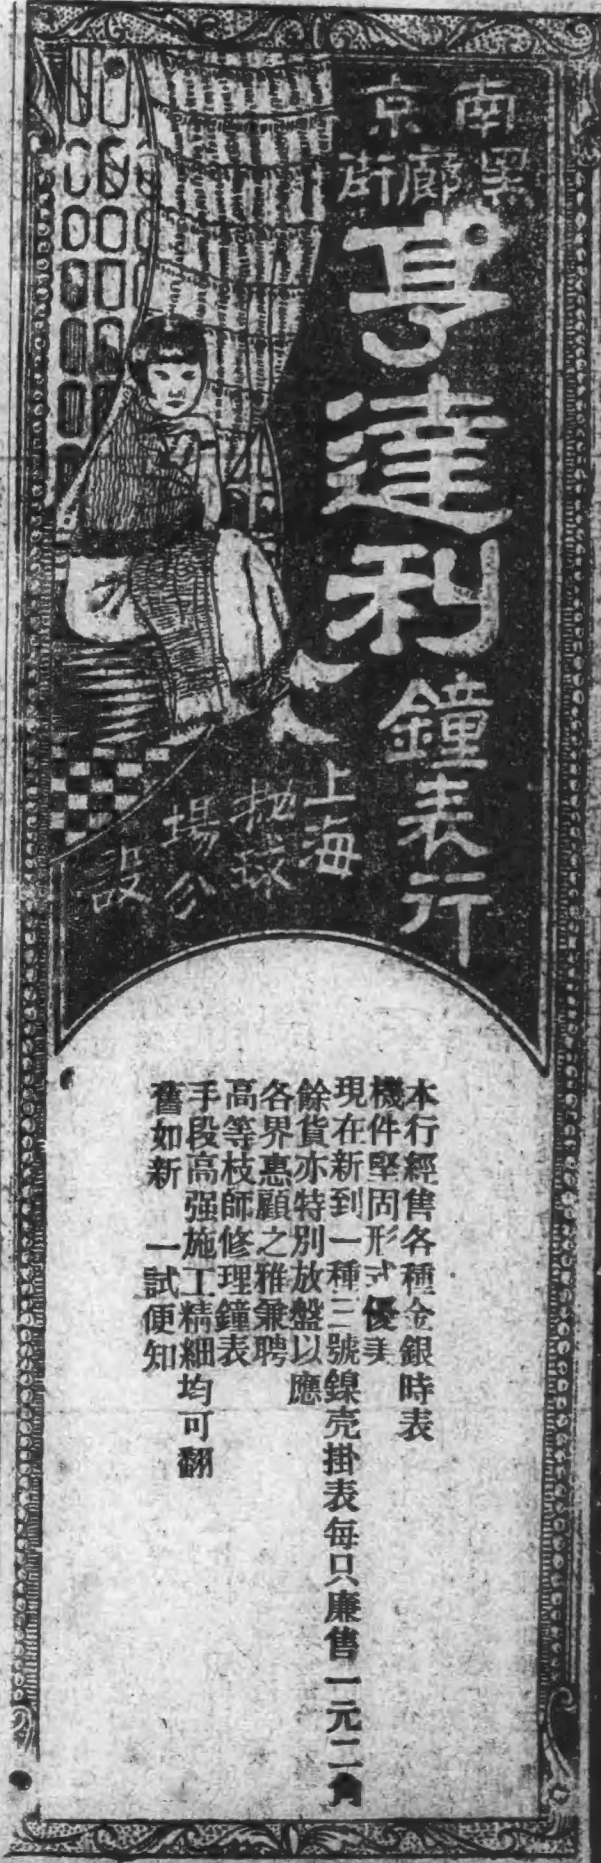 南京
黑廊街
亨達利
鐘表行
上海
抛球
場分
設
本行經售各種金銀時表
機件堅固形式優美
現在新到一種三號鎳壳掛表每只廉售一元二角
餘貨亦特別放盤以應
各界惠顧之雅兼聘
高等枝師修理鐘表
手段高强施工精細均可翻
舊如新　一試便知